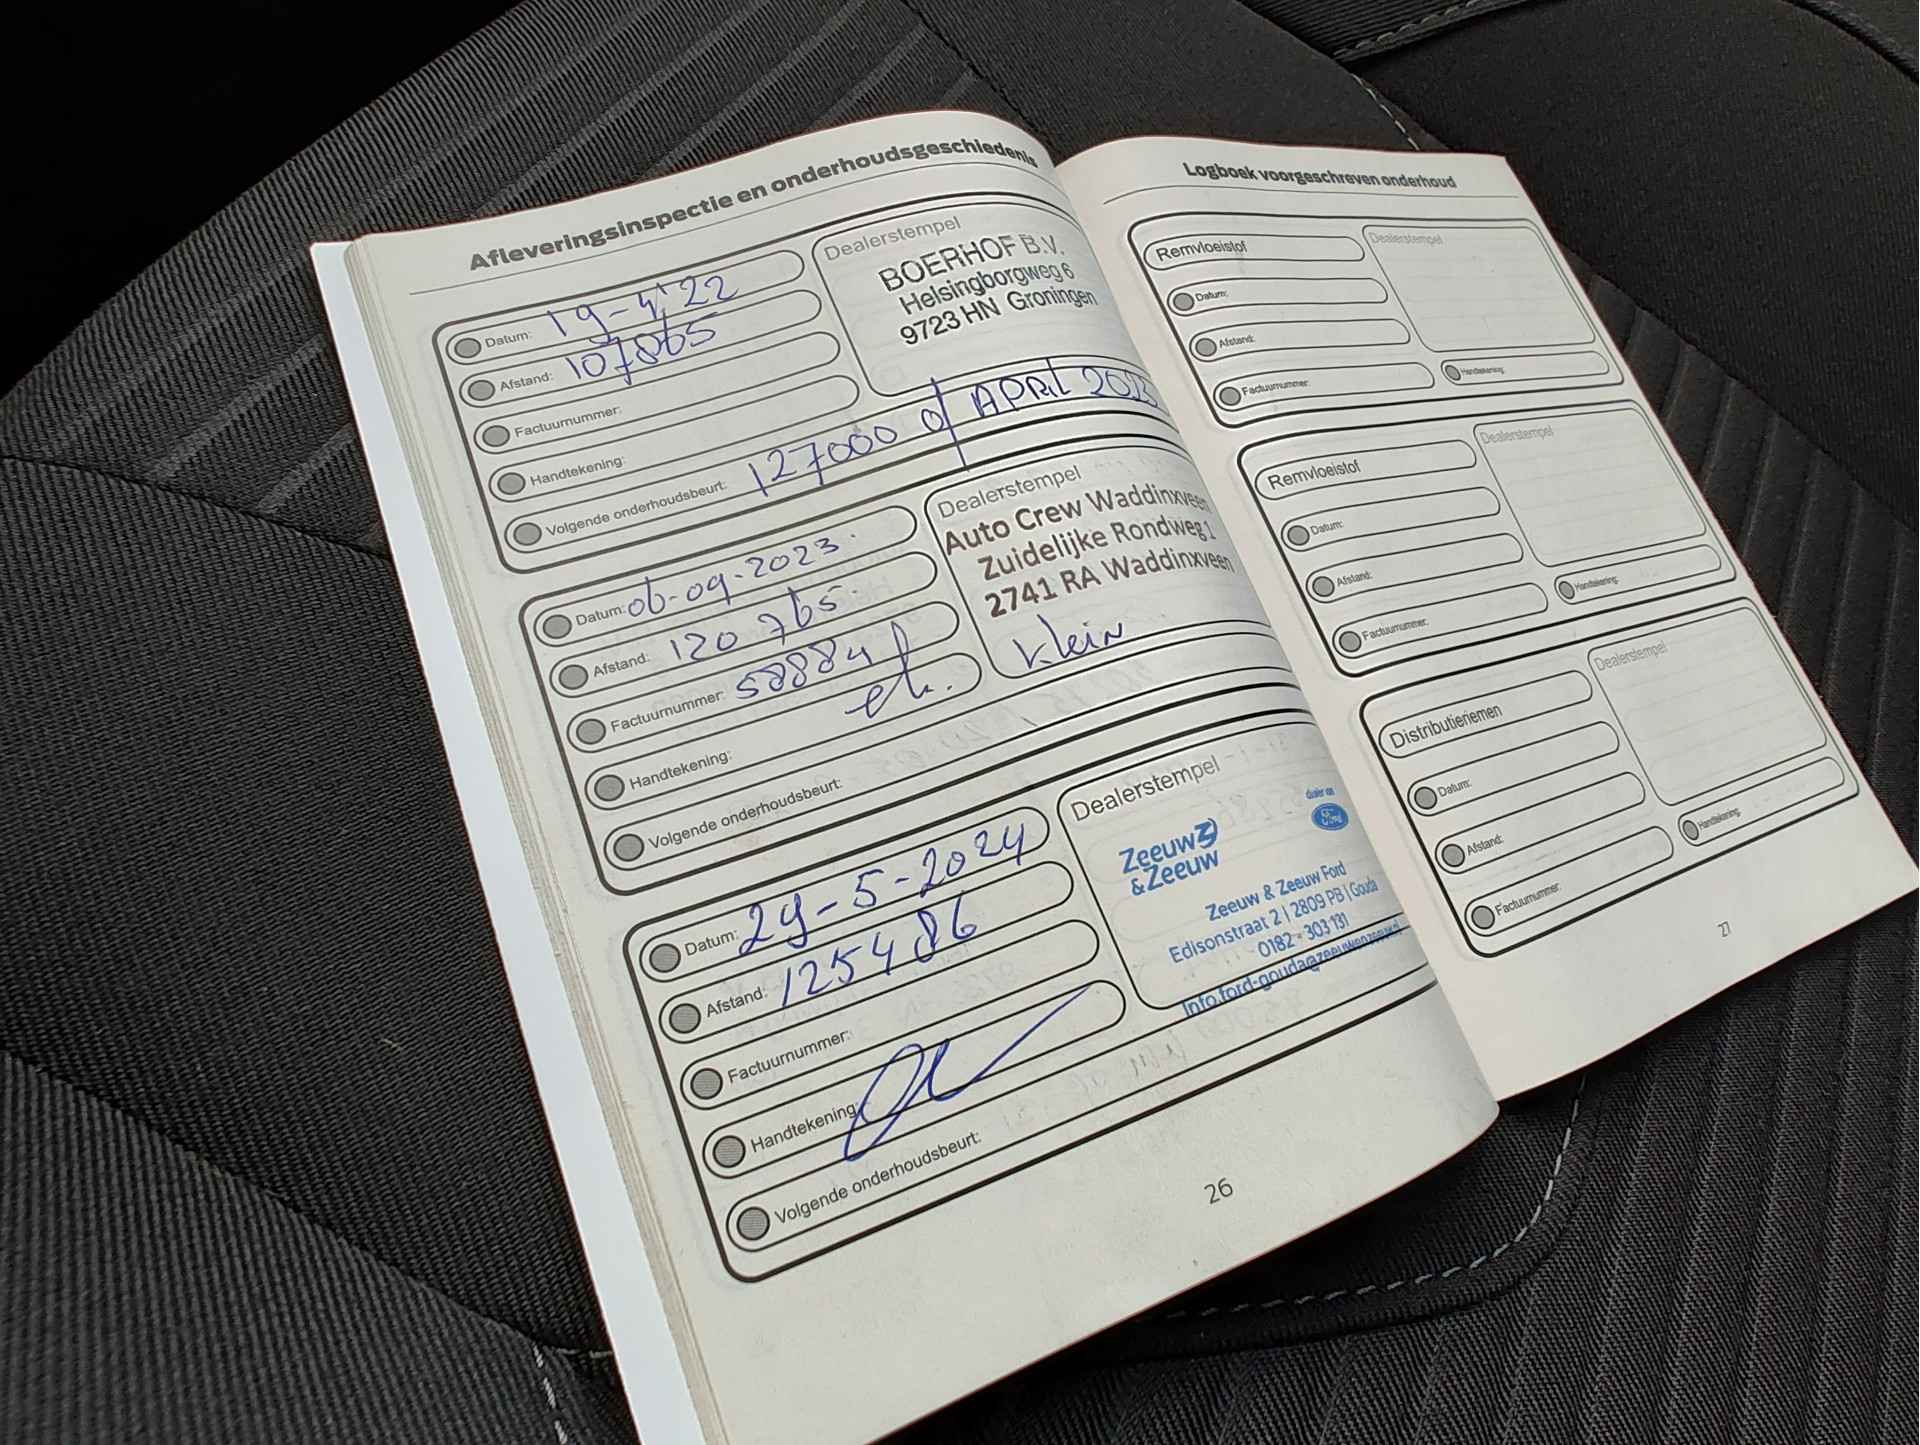 Afleveringsinspectie en onderhoudsgeschiedenis
Datum: 19-4-'22
Afstand: 107865
Factuurnummer:
Handtekening:
Volgende onderhoudsbeurt: 127000 of APRIL 2023
Dealerstempel
BOERHOF B.V.
Helsingborgweg 6
9723 HN Groningen
Datum: 06-09-2023.
Afstand: 120 765.
Factuurnummer: 588841
Handtekening:
Volgende onderhoudsbeurt:
Dealerstempel
Auto Crew Waddinxveen
Zuidelijke Rondweg 1
2741 RA Waddinxveen
Klein
Datum: 29-5-2024
Afstand: 125486
Factuurnummer:
Handtekening:
Volgende onderhoudsbeurt:
Dealerstempel
dealer van
Ford
Zeeuw
& Zeeuw
Zeeuw & Zeeuw Ford
Edisonstraat 2 | 2809 PB | Gouda
0182 - 303 131
Info.ford-gouda@zeeuwenzeeuw.nl
26
Logboek voorgeschreven onderhoud
Remvloeistof
Datum:
Afstand:
Factuurnummer:
Dealerstempel
Handtekening:
Remvloeistof
Datum:
Afstand:
Factuurnummer:
Dealerstempel
Handtekening:
Distributieriemen
Datum:
Afstand:
Factuurnummer:
Dealerstempel
Handtekening:
27